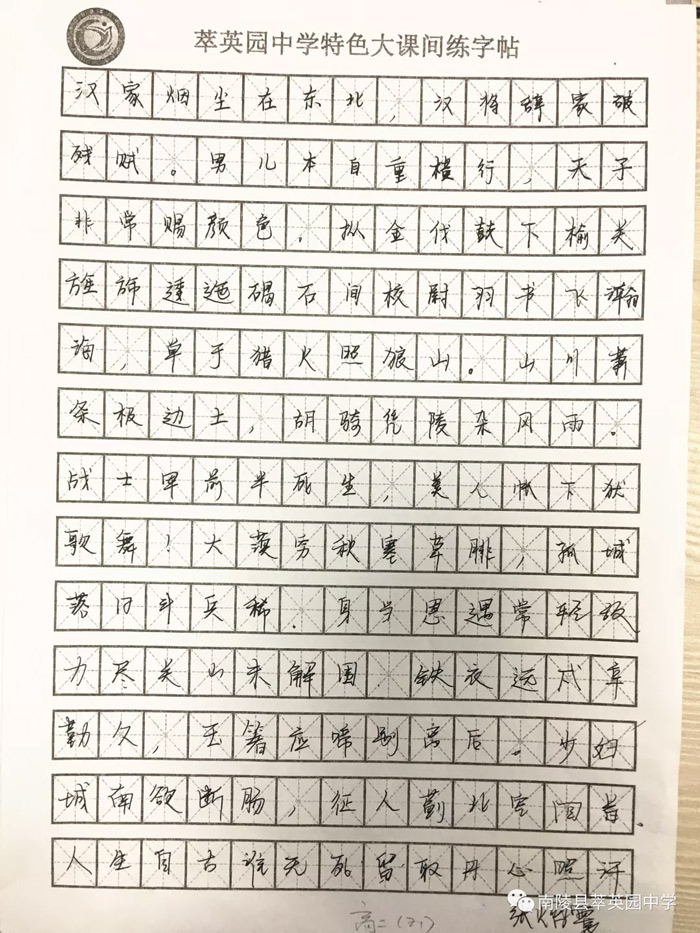 萃英园中学特色大课间练字帖
汉家烟尘在东北，汉将辞家破
残贼。男儿本自重横行，天子
非常赐颜色，摐金伐鼓下榆关
旌旆逶迤碣石间校尉羽书飞瀚
海，单于猎火照狼山。山川萧
条极边土，胡骑凭陵杂风雨。
战士军前半死生，美人帐下犹
歌舞！大漠穷秋塞草腓，孤城
落日斗兵稀．身当恩遇常轻敌
力尽关山未解围 铁衣远戍辛
勤久，玉箸应啼别离后．少妇
城南欲断肠，征人蓟北空回首．
人生自古谁无死留取丹心照汗
高二（21）
南陵县萃英园中学